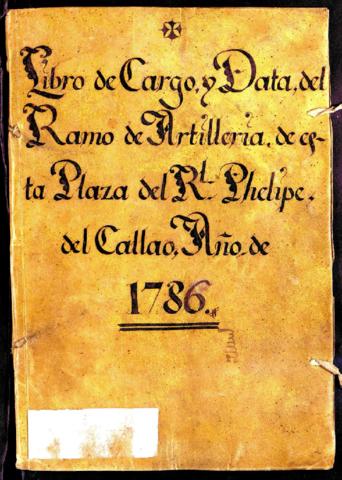 Libro de Cargo, y Data, del
Ramo de Artilleria, de es-
ta Plaza del Rl. Phelipe,
del Callao, Año, de
1786.